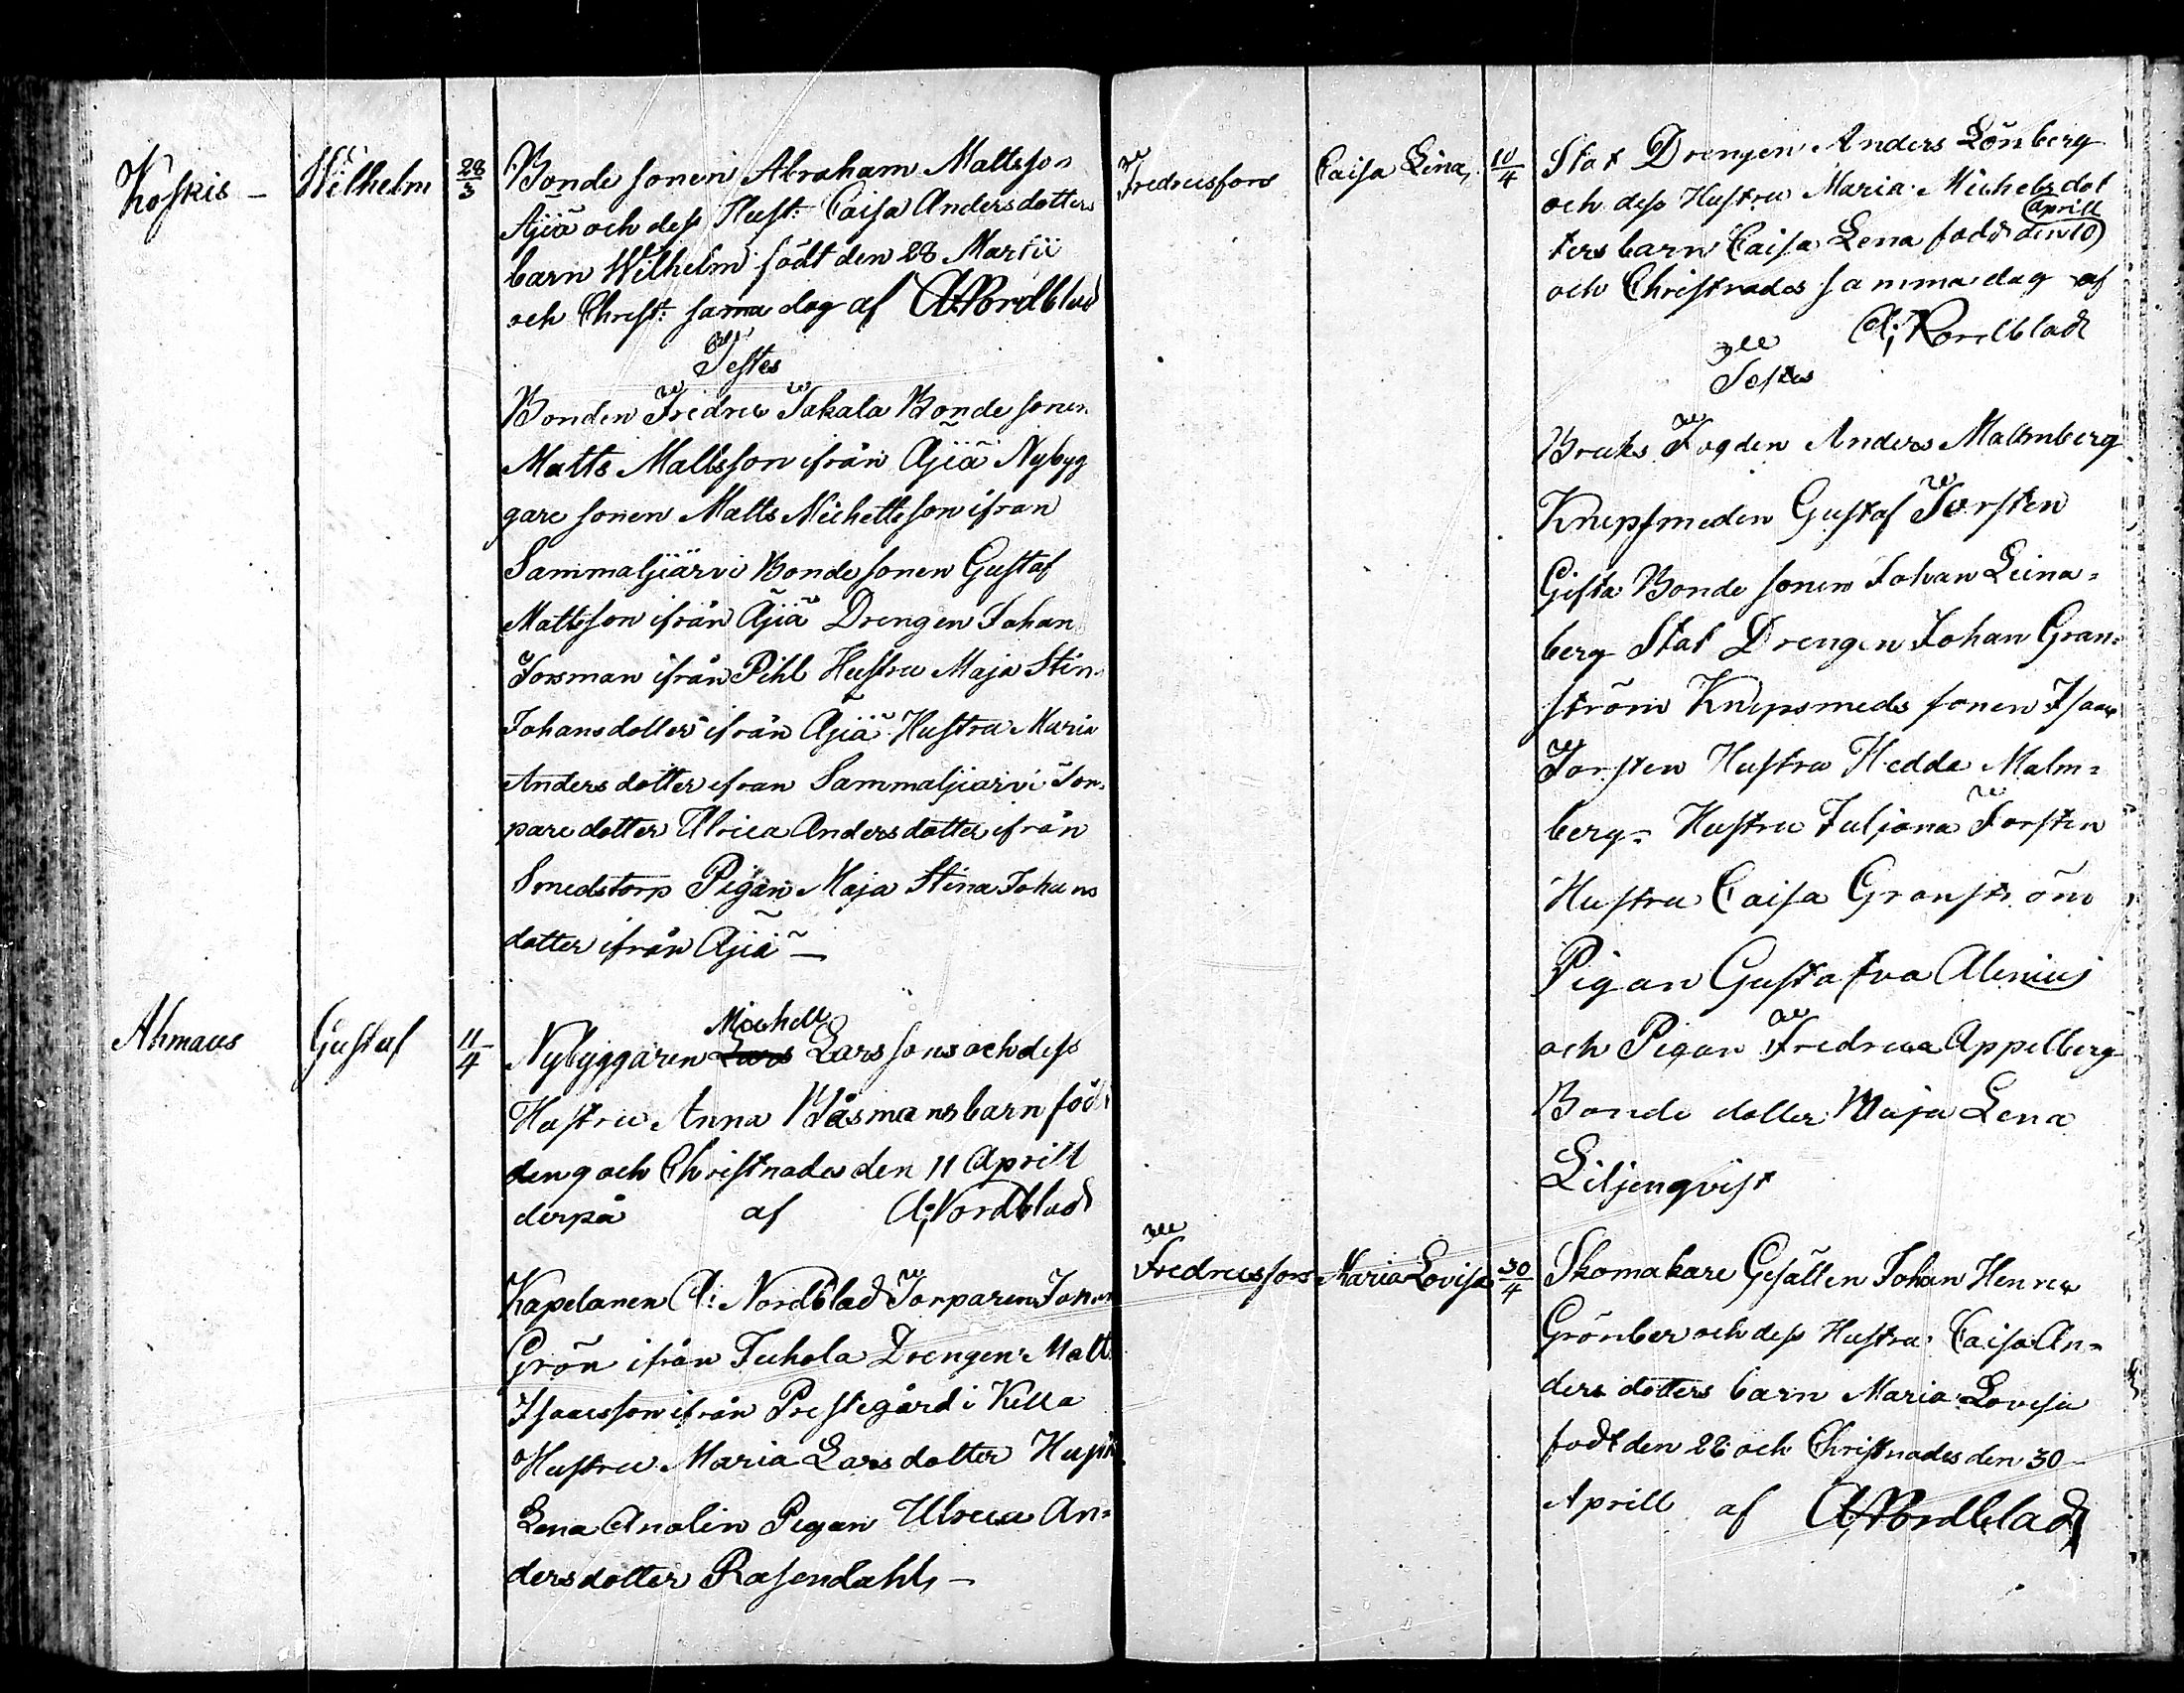 Koskis — Wilhelm 28/3 Bonde sonen Abraham Mattsson
Äjiä och dess Hust: Caisa Andersdotters
barn Wilhelm födt den 28 Martii
och Christ: sama dag af A:Nordblad
Testes
Bonden Fredric Takala Bonde sonen
Matts Mattsson ifrån Äjiä Nybyg
gare sonen Matts Michellsson ifran
Sammaljiärvi Bonde sonen Gustaf
Mattsson ifrån Äjiä Drengen Johan
Forsman ifrån Pihl Hustru Maja Stin
Johansdotter ifrån Äjiä Hustru Maria
Anders dotter ifran Sammaljiarvi Tor
pare dotter Ulrica Andersdotter ifrån
Smedstorp Pigan Maja Stina Johans
dotter ifrån Äjiä —
Ahmaus Gustaf 11/4 Nybyggaren Lars Michell Larssons och dess
Hustru Anna Wäsmans barn föd
den 9 och Christnades den 11 Aprill
derpå af A:Nordblad
Kapelanen A: Nordblad Torparen Johan
Grön ifrån Tuhola Drengen Matt
Isacsson ifrån Prestegård i Killa
Hustru Maria Larsdotter
Lena Analin Pigan Ulrica An=
dersdotter Rosendahl —
Fredricsfors Caisa Lina 10/4 Stat Drengen Anders Lönberg
och dess Hustru Maria Michelsdot
ters barn Caisa Lena född den 10 Aprill
och Christnades samma dag af
A: Nordblad
Testes
Bruks Fogden Anders Malmberg
Knipsmeden Gustaf Torsten
Gifta Bonde sonen Johan Leina=
berg Stat Drengen Johan Gran=
ström Knipsmeds sonen Isaac
Torsten Hustru Hedda Malm=
berg= Hustru Juljana Torsten
Hustru Caisa Granström
Pigan Gustafva Alenius
och Pigan Fredrica Appelberg
Bonde dotter Maja Lena
Liljenqvist
Fredricsfors Maria Lovisa 30/4 Skomakare Gesällen Johan Henric
Grönber och dess Hustru Caisa An=
ders dotters barn Maria Lovisa
fodt den 28 och Christnades den 30
Aprill af A:Nordblad